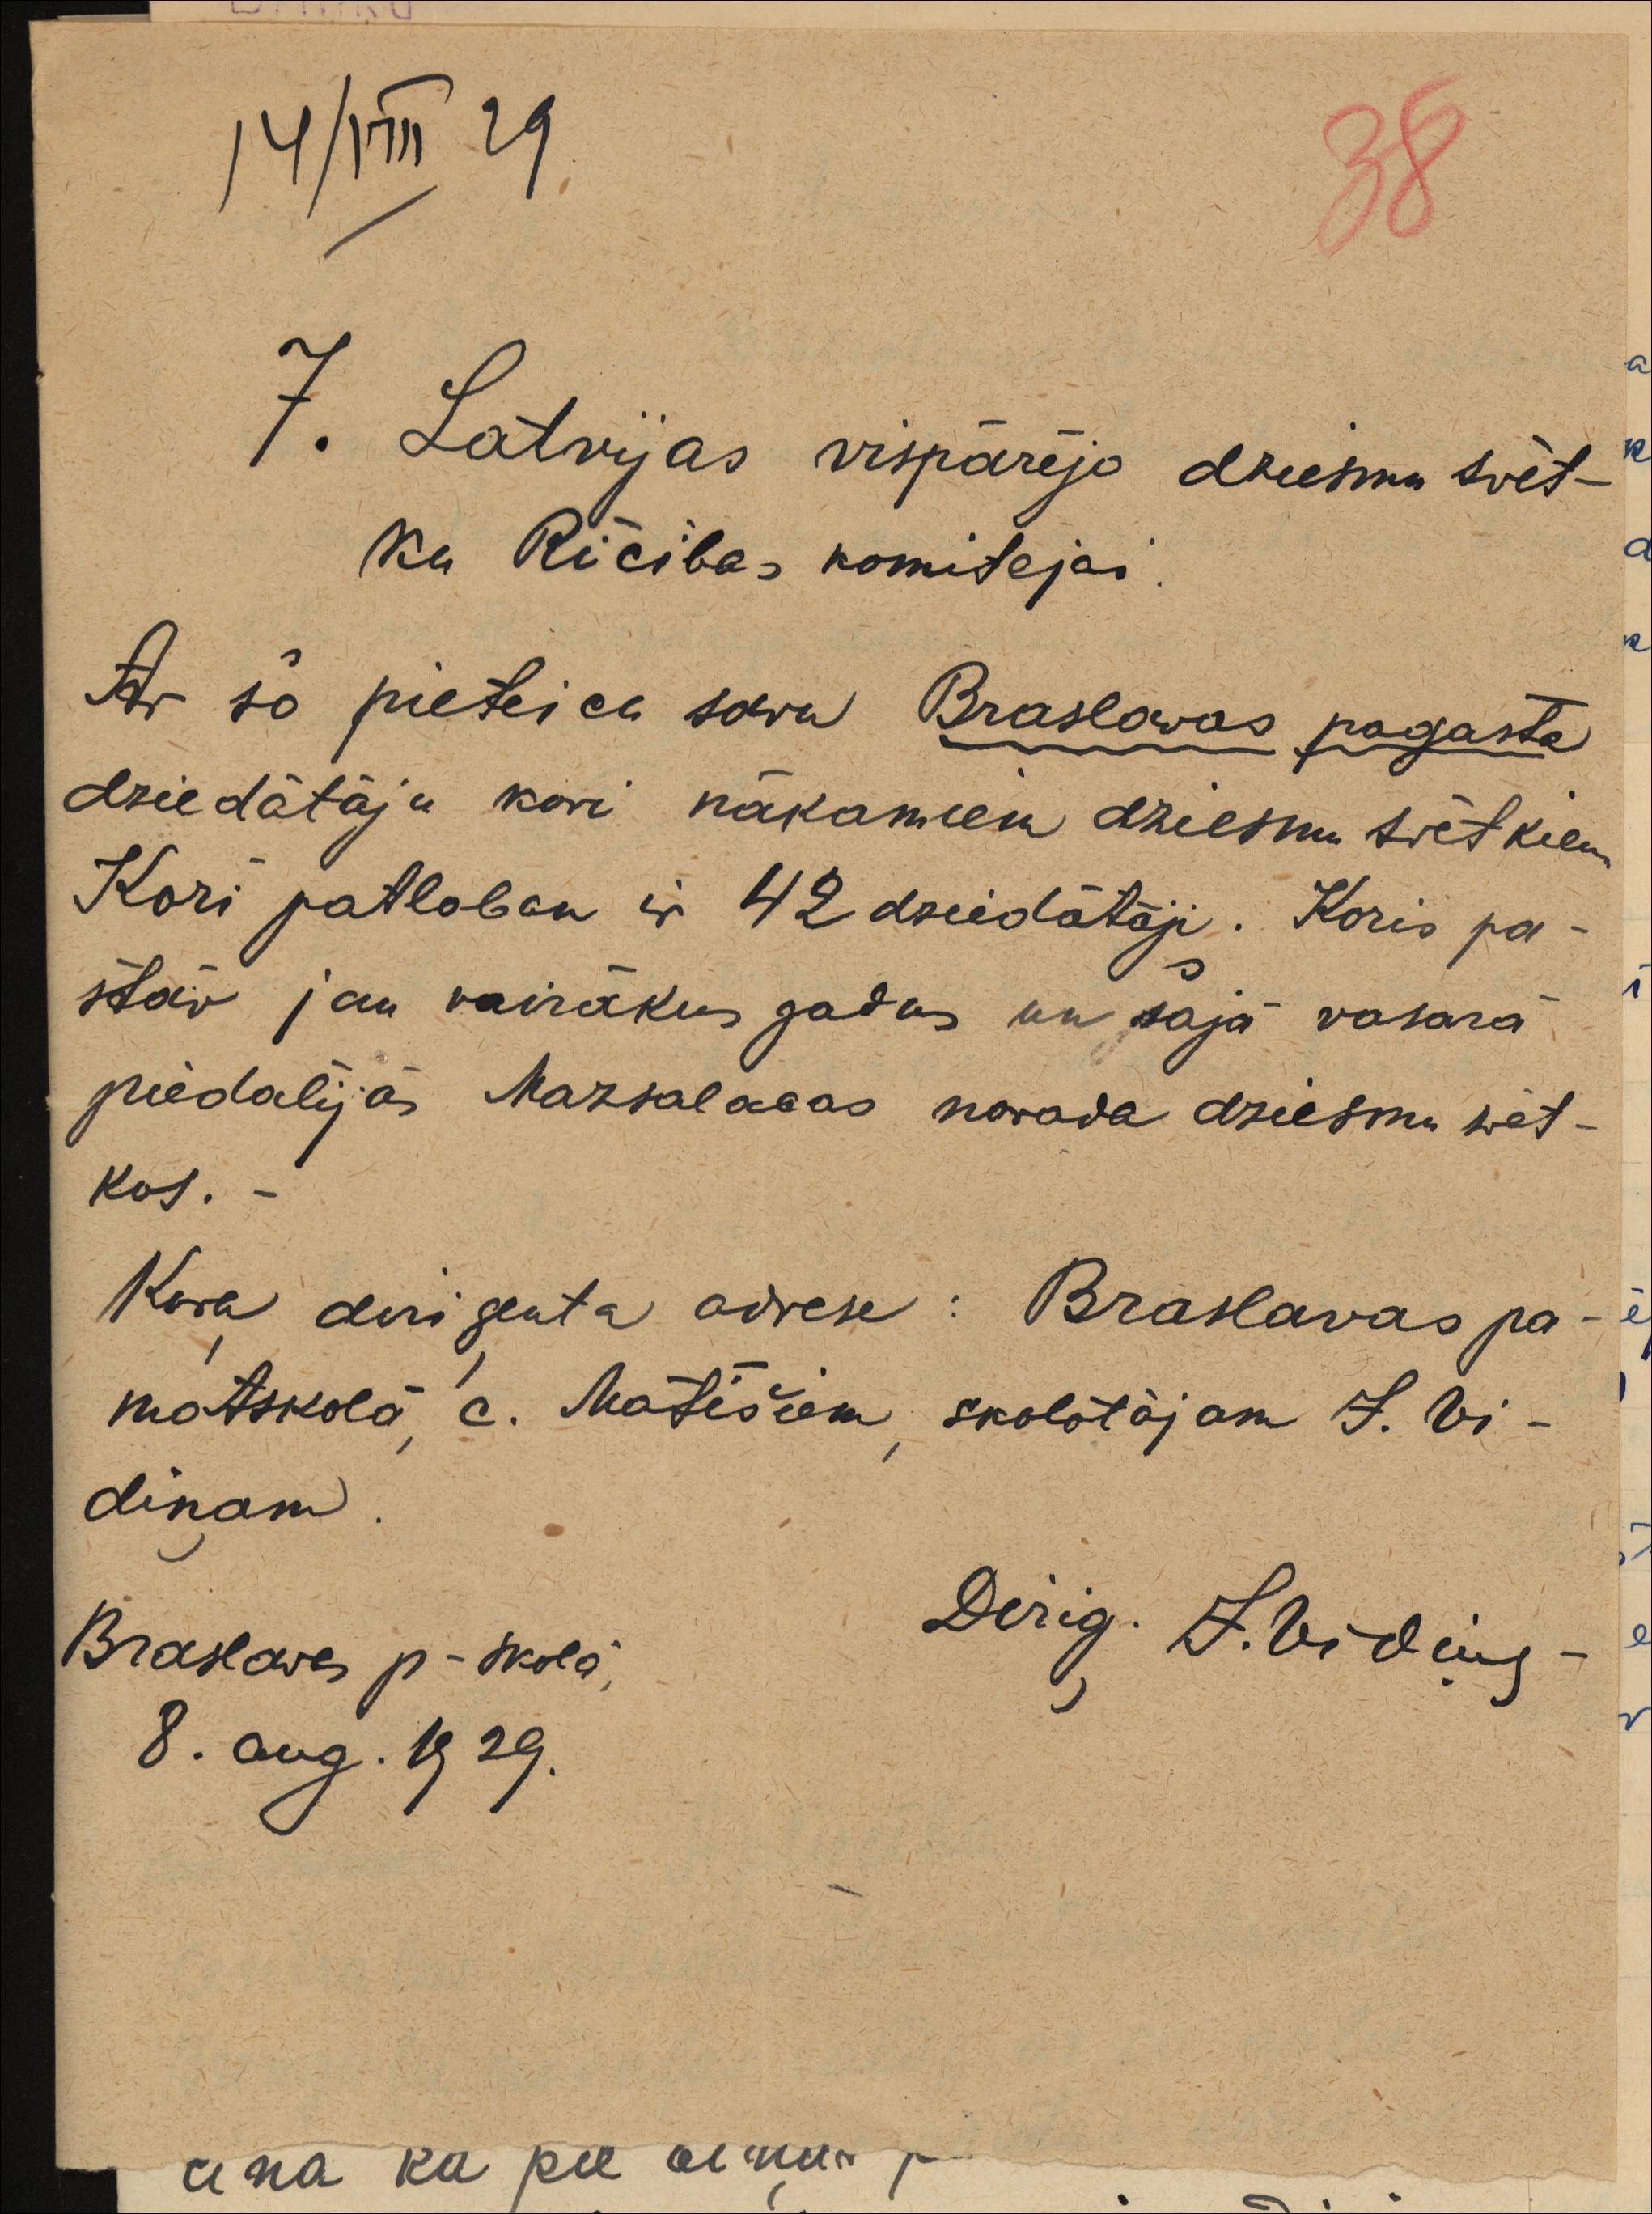 14/VIII 29
38
7. Latvijas vispārējo dziesmu svēt-
ku Rīcības komitejai.
Ar šo pieteicu savu Braslavas pagasta
dziedātāju kori nākamiem dziesmu svētkiem
Korī patlaban ir 42 dziedātāji. Koris pa-
stāv jau vairākus gadus un šajā vasarā
piedalījās Mazsalacas novada dziesmu svēt-
kos. -
Koŗa diriģenta adrese: Braslavas pa-
matskolā, c. Matīšiem, skolotājam J. Vī-
diņam.
Dirig. J. Vīdiņš -
Braslavas p-skolā,
8. aug. 1929.